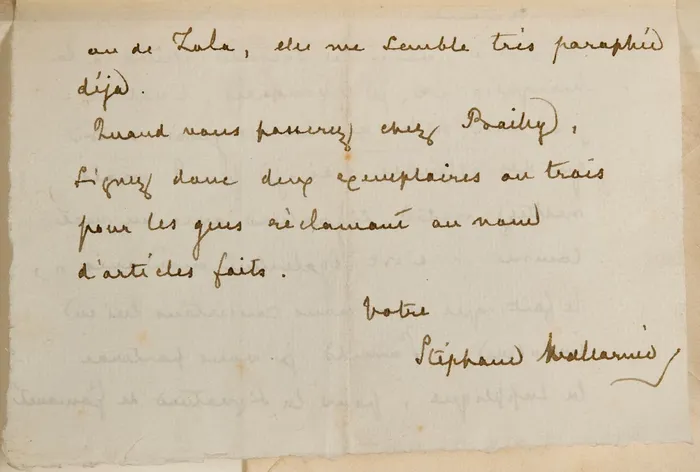 ou de Zola, elle me semble très paraphée
déjà.
Quand vous passerez chez Bailly,
signez donc deux exemplaires ou trois
pour les gens réclamant au nom
d'articles faits.
Votre
Stéphane Mallarmé